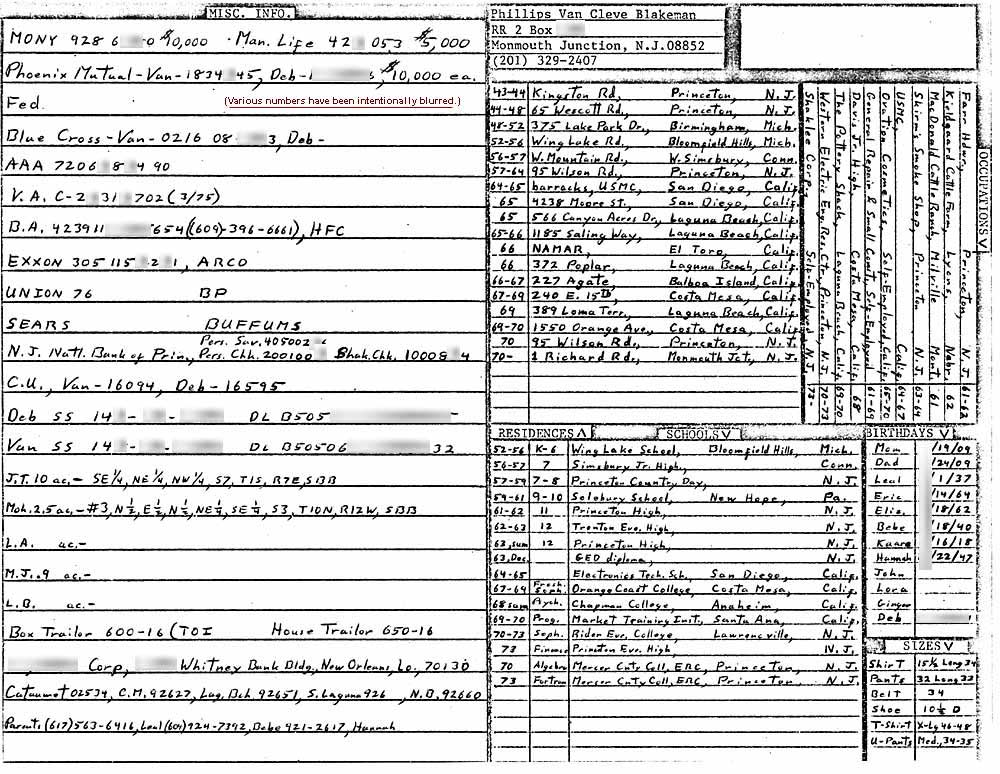 MISC. INFO.
MONY 928 6 0 $10,000 · Man. Life 42 053 $5,000
Phoenix Mutual-Van-1834 45, Deb-1 s, $10,000 ea.
Fed. (Various numbers have been intentionally blurred.)
Blue Cross-Van-0216 08 3, Deb-
AAA 7206 8 4 90
V.A. C-2 31 702 (3/75)
B.A. 423911 654 ((609)-396-6661), HFC
EXXON 305 115 2 1, ARCO
UNION 76 BP
SEARS BUFFUMS
Pers. Sav. 405002
N.J. Natl. Bank of Prin, Pers. Chk. 200100 Shak. Chk. 10008 4
C.U., Van-16094, Deb-16595
Deb SS 14 - - DL B505 -
Van SS 14 - - DL B50506 32
J.T. 10 ac.- SE¼, NE¼, NW¼, S7, T1S, R7E, SBB
Moh. 2.5 ac.-#3, N½, E½, N½, NE¼, SE¼, S3, T10N, R12W, SBB
L.A. ac.-
M.J. .9 ac.-
L.B. ac.-
Box Trailor 600-16 (TOI House Trailor 650-16
Corp, Whitney Bank Bldg., New Orleans, La. 70130
Cataumet 02534, C.M. 92627, Lag. Bch. 92651, S. Laguna 926 , N.B. 92660
Parents (617) 563-6416, Leal (609) 924-7392, Bebe 921-2617, Hannah
Phillips Van Cleve Blakeman
RR 2 Box
Monmouth Junction, N.J. 08852
(201) 329-2407
43-44 Kingston Rd., Princeton, N.J.
44-48 65 Wescott Rd., Princeton, N.J.
48-52 375 Lake Park Dr., Birmingham, Mich.
52-56 Wing Lake Rd., Bloomfield Hills, Mich.
56-57 W. Mountain Rd., W. Simsbury, Conn.
57-64 95 Wilson Rd., Princeton, N.J.
64-65 barracks, USMC, San Diego, Calif.
65 4238 Moore St., San Diego, Calif.
65 566 Canyon Acres Dr., Laguna Beach, Calif.
65-66 1185 Saling Way, Laguna Beach, Calif.
66 NAMAR, El Toro, Calif.
66 372 Poplar, Laguna Beach, Calif.
66-67 227 Agate, Balboa Island, Calif.
67-69 240 E. 15th, Costa Mesa, Calif.
69 389 Loma Terr., Laguna Beach, Calif.
69-70 1550 Orange Ave., Costa Mesa, Calif.
70 95 Wilson Rd., Princeton, N.J.
70- 1 Richard Rd., Monmouth Jct., N.J.
OCCUPATIONS V
Farr Hdwry., Princeton, N.J. 61-62
Kildgaard Cattle Farm, Lyons, Nebr. 62
MacDonald Cattle Ranch, Melville Mont. 61
Skirm's Smoke Shop, Princeton N.J. 63-64
USMC, Calif. 64-67
Ovation Cosmetics, Self-Employed, Calif. 65-70
General Repair & Small Const., Self-Employed 61-69
Davis Jr. High, Costa Mesa, Calif. 68
The Pottery Shack, Laguna Beach, Calif. 69-70
Western Electric Eng. Res. Ctr., Princeton, N.J. 70-73
Shaklee Corp., Self-Employed, N.J. 73-
RESIDENCES Λ SCHOOLS V
52-56 K-6 Wing Lake School, Bloomfield Hills, Mich.
56-57 7 Simsbury Jr. High, Conn.
57-59 7-8 Princeton Country Day, N.J.
59-61 9-10 Solebury School, New Hope, Pa.
61-62 11 Princeton High, N.J.
62-63 12 Trenton Eve. High, N.J.
63, sum 12 Princeton High, N.J.
63, Dec. GED diploma, N.J.
64-65 Electronics Tech. Sch., San Diego, Calif.
67-69 Fresh. Soph. Orange Coast College, Costa Mesa, Calif.
68 sum Psych. Chapman College, Anaheim, Calif.
69-70 Prog. Market Training Inst., Santa Ana, Calif.
70-73 Soph. Rider Eve. College, Lawrenceville, N.J.
73 Finance Princeton Eve. High, N.J.
70 Algebra Mercer Cnty Coll, ERC, Princeton, N.J.
73 Fortran Mercer Cnty Coll, ERC, Princeton, N.J.
BIRTHDAYS V
Mom /19/09
Dad /24/09
Leal /1/37
Eric /14/64
Eliz. /18/62
Bebe /18/40
Kaare /16/18
Hannah /22/47
John
Lora
Ginger
Deb
SIZES V
Shirt 15½ Long 34
Pants 32 Long 33
Belt 34
Shoe 10½ D
T-Shirt X-Lg 46-48
U-Pants Med., 34-35